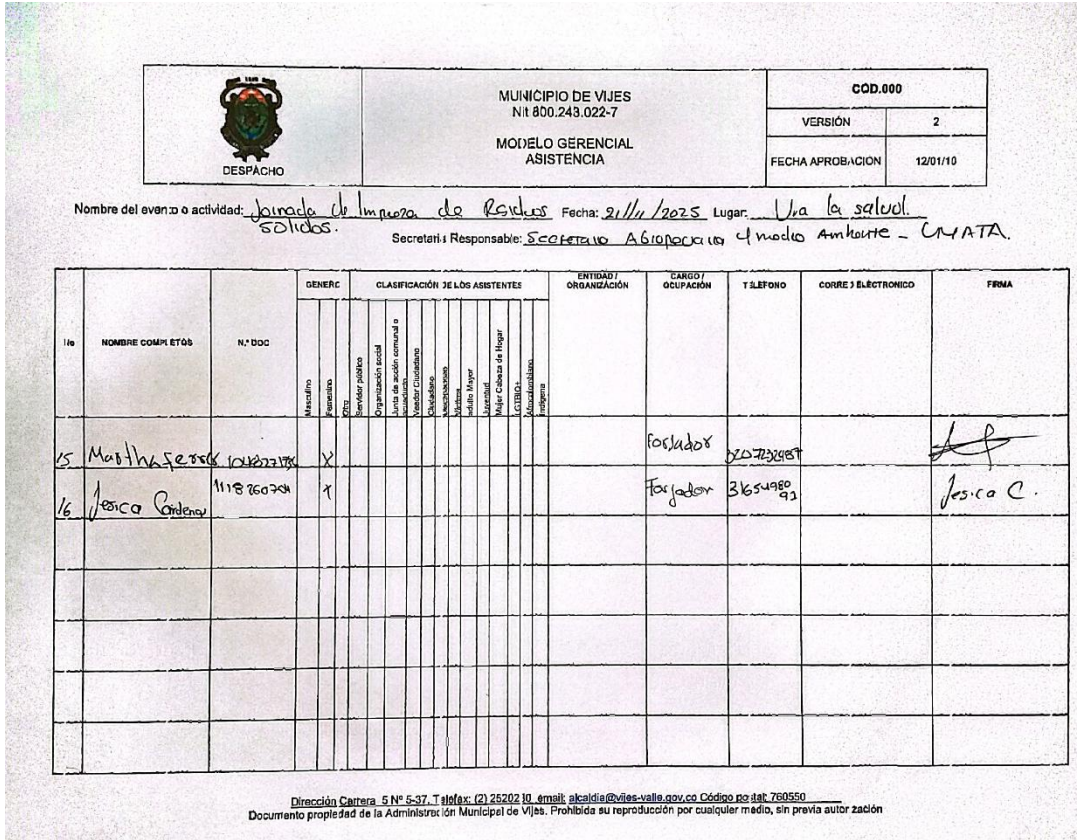 MUNICIPIO DE VIJES
Nit 800.243.022-7
MODELO GERENCIAL
ASISTENCIA
DESPACHO
COD.000
VERSIÓN 2
FECHA APROBACION 12/01/10
Nombre del evento o actividad: Jornada de limpieza de Residuos Fecha: 21/11/2025 Lugar: Via la salud.
solidos.
Secretaria Responsable: Secretaria Agropecuaria y medio Ambiente - UMATA.
No NOMBRE COMPLETOS N.º DOC GENERO CLASIFICACIÓN DE LOS ASISTENTES ENTIDAD / ORGANIZACIÓN CARGO / OCUPACIÓN TELEFONO CORREO ELECTRONICO FIRMA
Masculino
Femenino
Otro
Servidor público
Organización social
Junta de acción comunal o acueducto
Veedor Ciudadano
Ciudadano
Víctima
adulto Mayor
Juventud
Mujer Cabeza de Hogar
LGTBIQ+
Afrocolombiano
Indígena
15 Martha X Forjador 3207232987
16 Jesica Cardenas 1118260704 X Forjador 3165498092 Jesica C.
Dirección Carrera 5 Nº 5-37, Telefax: (2) 2520210 email: alcaldia@vijes-valle.gov.co Código postal: 760550
Documento propiedad de la Administración Municipal de Vijes. Prohibida su reproducción por cualquier medio, sin previa autorización